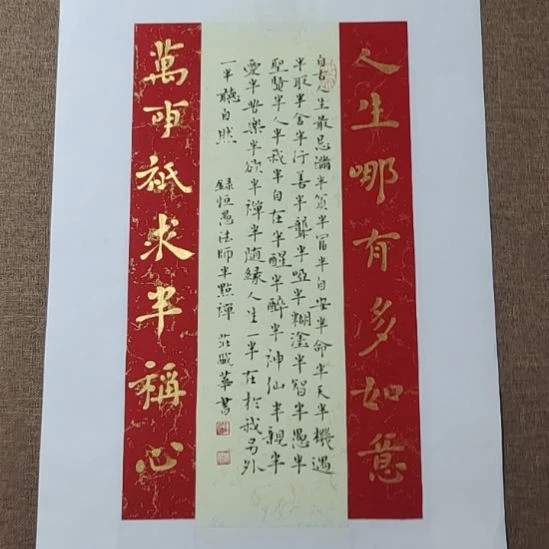 人生哪有多如意
自古人生最忌滿半貧半富半自安半命半天半機遇
半取半舍半行善半聾半啞半糊塗半智半愚半
聖賢半人半我半自在半醒半醉半神仙半親半
愛半苦樂半欲半禪半隨緣人生一半在於我另外
一半聽自然 錄恒愚法師半點禪 莊華書
萬事祗求半稱心